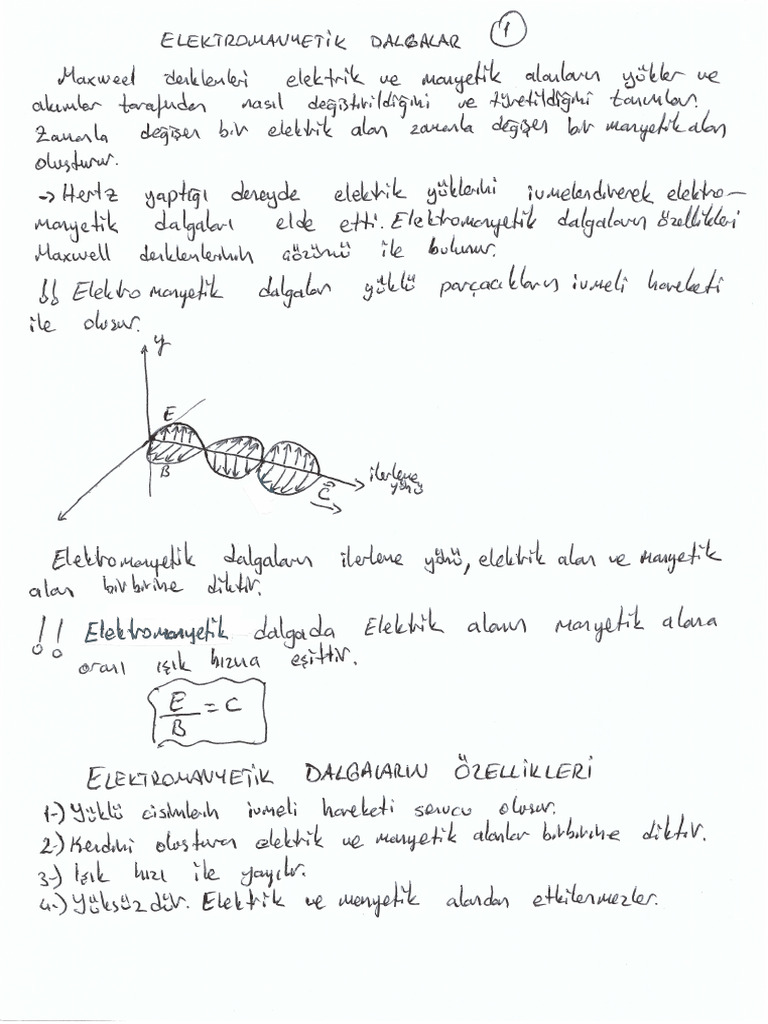 ELEKTROMANYETİK DALGALAR 1
Maxwell denklemleri elektrik ve manyetik alanların yükler ve
akımlar tarafından nasıl değiştirildiğini ve türetildiğini tanımlar.
Zamanla değişen bir elektrik alan zamanla değişen bir manyetik alan
oluşturur.
-> Hertz yaptığı deneyde elektrik yüklerini ivmelendirerek elektro-
manyetik dalgaları elde etti. Elektromanyetik dalgaların özellikleri
Maxwell denklemlerinin çözümü ile bulunur.
!! Elektro manyetik dalgalar yüklü parçacıkların ivmeli hareketi
ile oluşur.
y
E
B
ilerleme
yönü
C
Elektromanyetik dalgaların ilerleme yönü, elektrik alan ve manyetik
alan birbirine diktir.
!! Elektromanyetik dalgada Elektrik alanın manyetik alana
oranı ışık hızına eşittir.
E/B = C
ELEKTROMANYETİK DALGALARIN ÖZELLİKLERİ
1-) Yüklü cisimlerin ivmeli hareketi sonucu oluşur.
2-) Kendini oluşturan elektrik ve manyetik alanlar birbirine diktir.
3-) Işık hızı ile yayılır.
4-) Yüksüzdür. Elektrik ve manyetik alandan etkilenmezler.